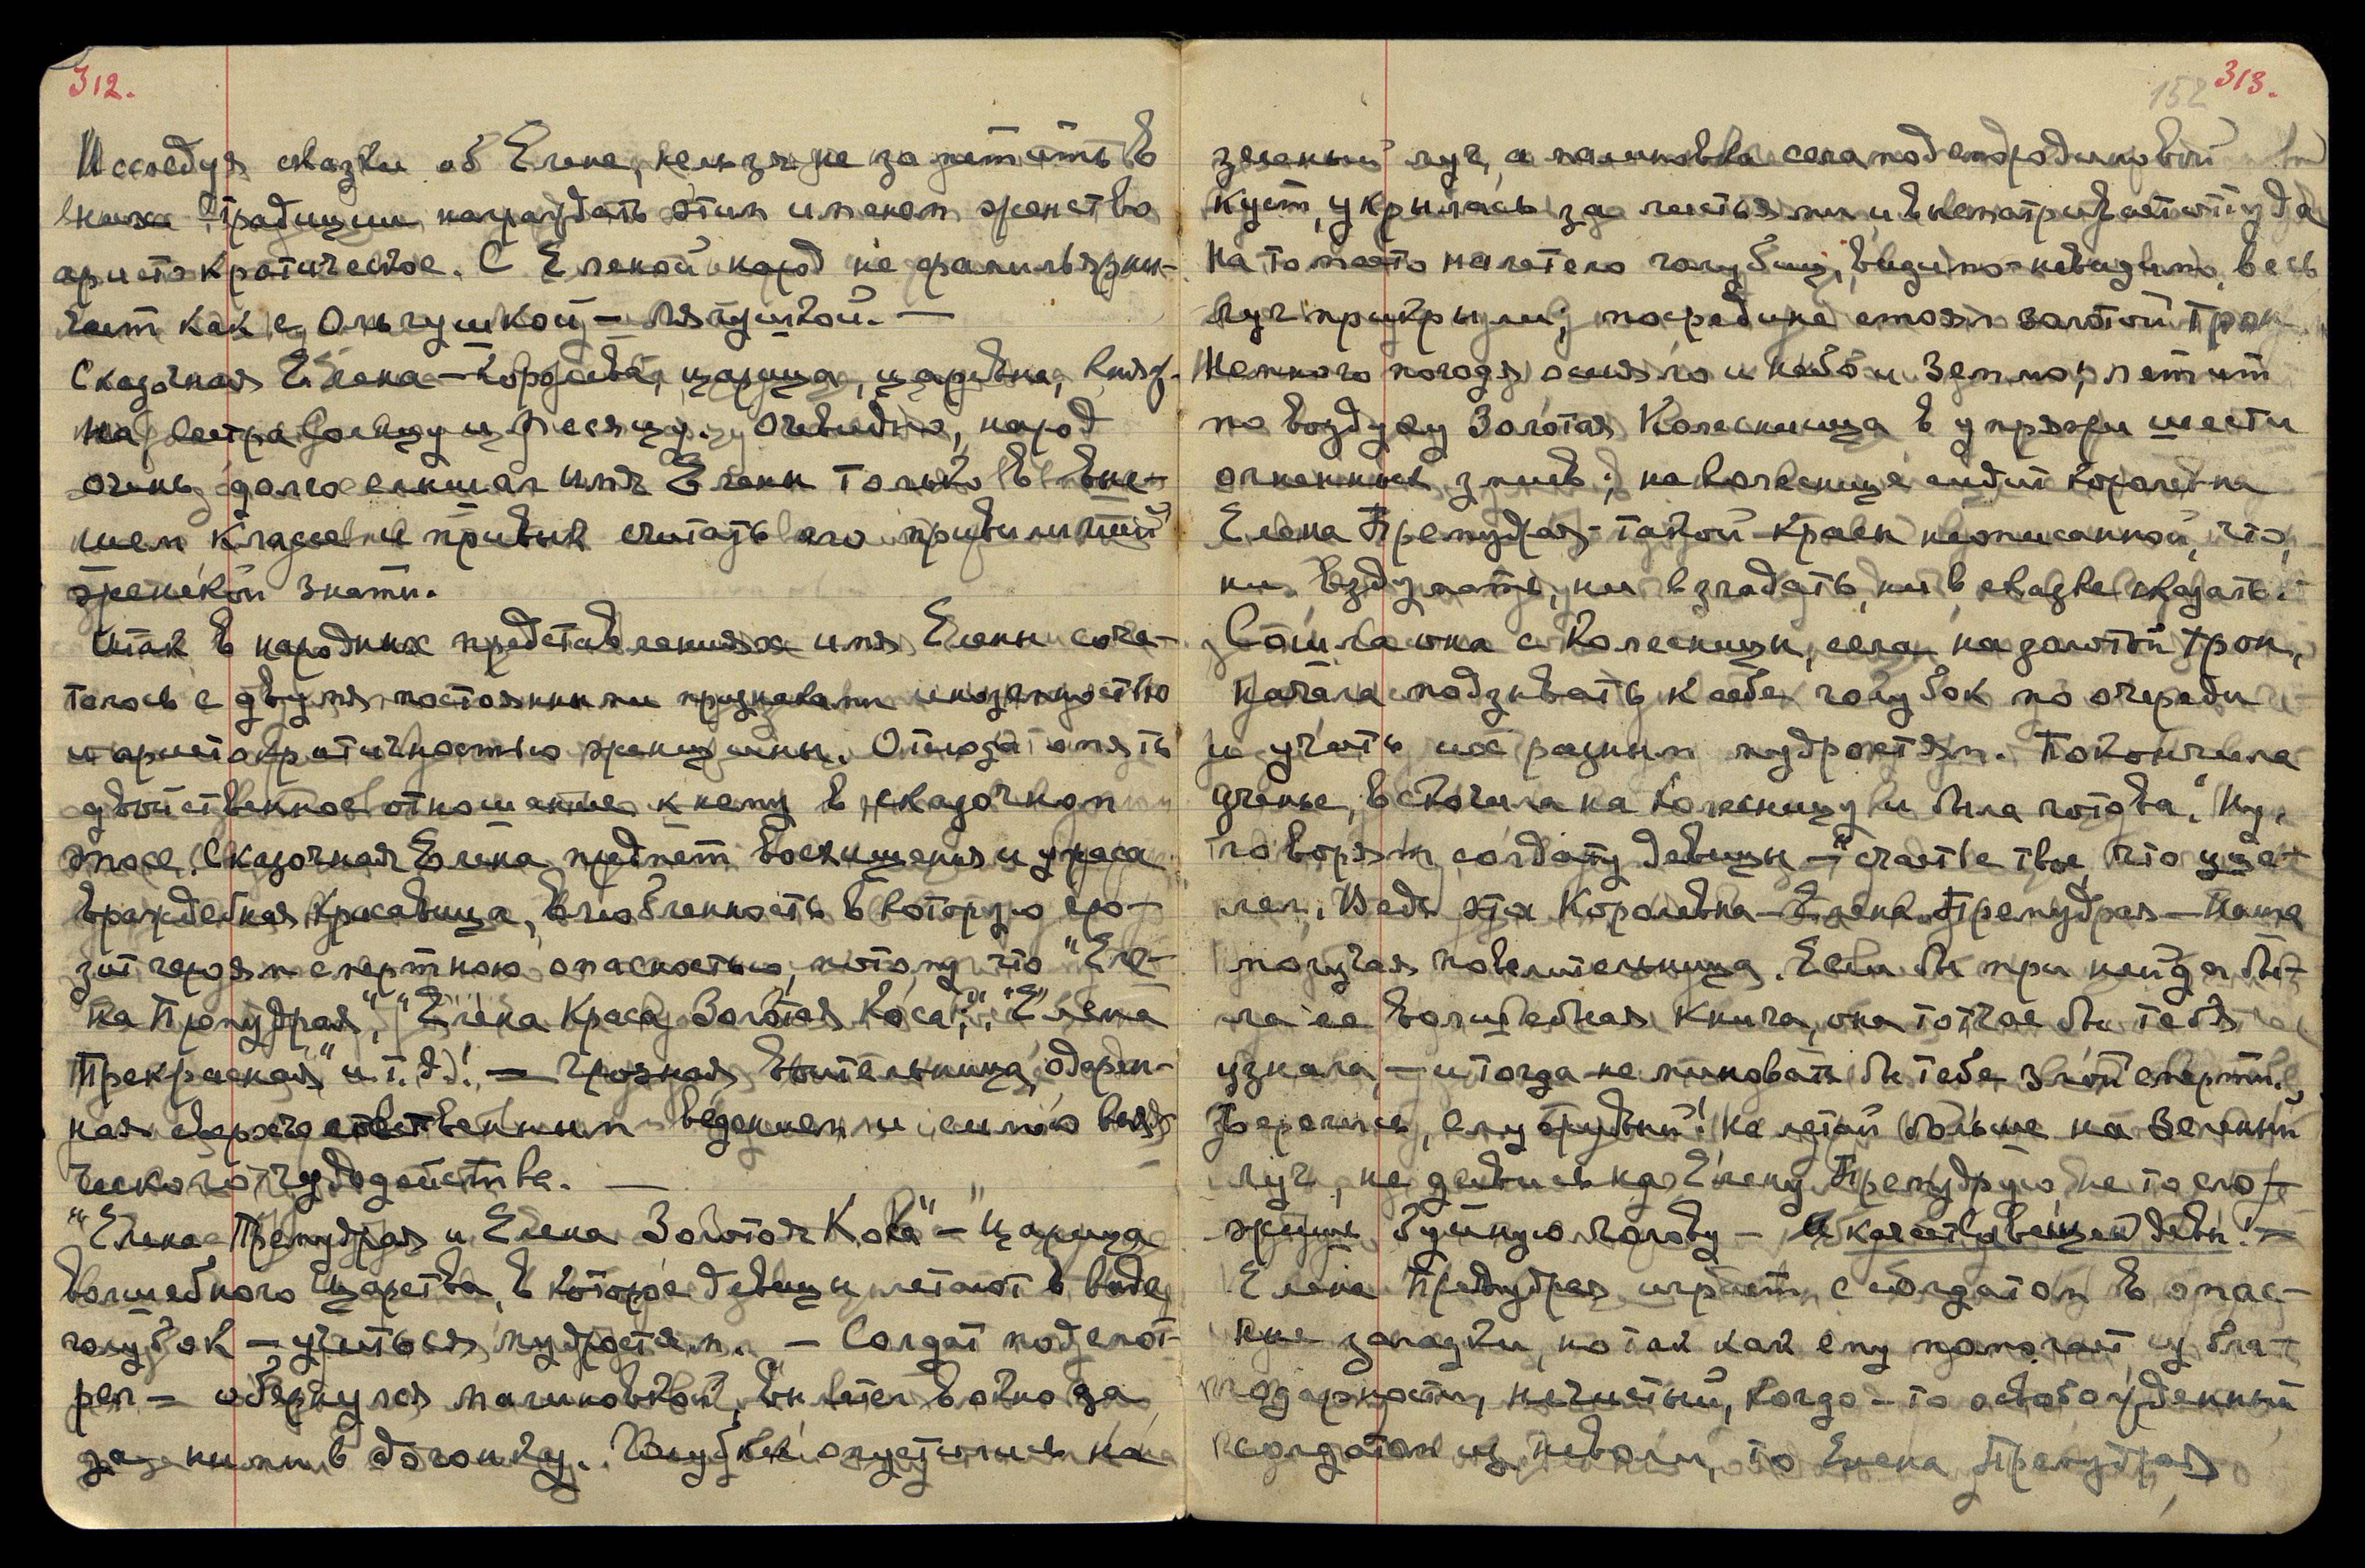 312.
Исследуя сказки об Елене, нельзя не заметить в
них традиции награждать этим именем женство
аристократическое. С Еленой народ не фамильярни-
чает как с Ольгушкой - лягушкой. —
Сказочная Елена - королева, царица, царевна, княж-
на, сестра Солнцу и Месяцу. Очевидно, народ
очень долго слышал имя Елены только в выс-
шем классе и привык считать его привилегией
женской знати.
Итак в народных представлениях имя Елены соче-
талось с двумя постоянными признаками иноземностью
и аристократичностью женщины. Отсюда опять
двойственное отношение к нему в сказочном
эпосе. Сказочная Елена предмет восхищения и ужаса
враждебная красавица, влюбленность в которую гро-
зит героям смертною опасностью, потому что "Еле-
на Премудрая", "Елена Краса Золотая Коса", "Елена
Прекрасная" и т. д.! — грозная воительница, одарен-
ная сверхъестественным ведением и силою
ческого чудодейства. —
"Елена Премудрая и Елена Золотая Коса" - "царица
волшебного царства, в которое девицы летают в виде
голубок - учиться мудростям. — Солдат подсмот-
рел - обернулся малиновкой, вылетел в окно да
за ними в догонку. Голубки опустились на
152 313.
зеленый луг, а малиновка села под смородиновый
куст, укрылась за листьями и высматривает оттуда
На то место налетело голубиц, видимо-невидимо, весь
луг прикрыли; посредине стоял золотой трон
Немного погодя осияло и небо и землю; летит
по воздуху Золотая Колесница в упряжи шести
огненных змиев; на колеснице сидит королевна
Елена Премудрая - такой красы неописанной, что
ни вздумать, ни взгадать, ни в сказке сказать.
Сошла она с колесницы, села на золотой трон,
начала подзывать к себе голубок по очереди
и учить их разным мудростям. Покончила
ученье, вскочила на колесницу и была такова. "Ну,
говорят солдату девицы - "счастье твое, что уце-
лел. Ведь эта Королевна - Елена Премудрая - наша
могучая повелительница. Если бы при ней да бы-
ла ее волшебная книга, она тотчас бы тебя
узнала - и тогда не миновать бы тебе злой смерти.
Берегись, служивый! Не летай больше на Зеленый
луг, не дивись на Елену Премудрую не то сло-
жишь буйную голову - И качестве вещей девы! -
Елена Премудрая играет с солдатом в опас-
ные загадки, но так как ему помогает из бла-
годарности, нечистый, когда-то освобожденный
солдатом из неволи, то Елена Премудрая